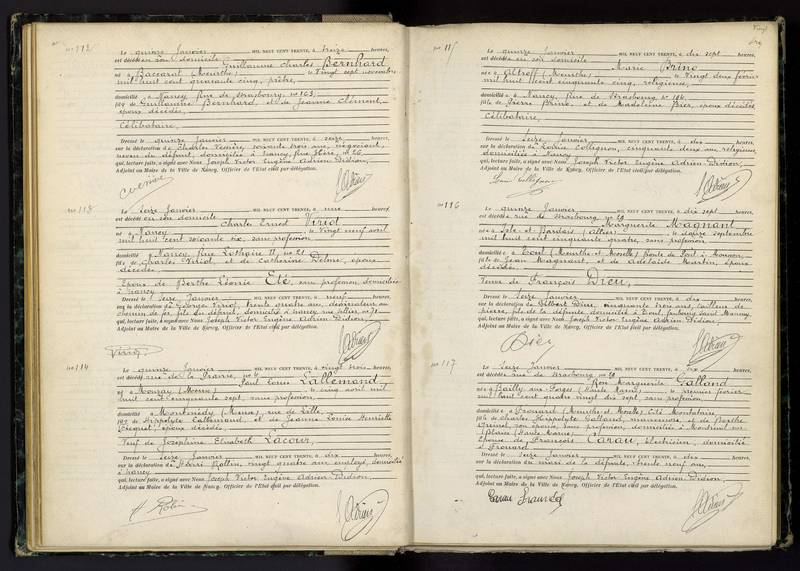 no 112
Le quinze Janvier MIL NEUF CENT TRENTE, à treize heures,
est décédé en son domicile Guillaume Charles Bernhard
né à Baccarat (Meurthe) le Vingt sept novembre
mil huit cent quarante cinq, prêtre,
domicilié à Nancy Rue de Strasbourg no 163,
fils de Guillaume Bernhard, et de Jeanne Clément,
époux décédés,
Célibataire,
Dressé le quinze Janvier MIL NEUF CENT TRENTE, à seize heures,
sur la déclaration de Charles soixante trois ans, négociant,
neveu du défunt, domicilié à Nancy, Rue Héré, no 26,
qui, lecture faite, a signé avec Nous Joseph Victor Eugène Adrien Didion,
Adjoint au Maire de la Ville de Nancy, Officier de l'Etat civil par délégation.
no 113
Le seize Janvier MIL NEUF CENT TRENTE, à une heures,
est décédé en son domicile
Charles Ernest Viriot
né à Nancy le Vingt neuf avril
mil huit cent soixante six, sans profession,
domicilié à Nancy, Rue Lothaire II, no 21
fils de Charles Viriot, et de Catherine époux
décédés,
Epoux de Berthe Léonie Eté, sans profession, domiciliée
à Nancy
Dressé le Seize Janvier MIL NEUF CENT TRENTE, à neuf heures,
sur la déclaration de Georges Viriot, trente quatre ans, dessinateur au
chemin de fer, fils du défunt, domicilié à Nancy,
qui, lecture faite, a signé avec Nous Joseph Victor Eugène Adrien Didion,
Adjoint au Maire de la Ville de Nancy, Officier de l'Etat civil par délégation.
Viriot
no 114
Le quinze Janvier MIL NEUF CENT TRENTE, à vingt trois heures,
est décédé
Paul Louis Lallemand
né à Mouzay (Meuse) le cinq avril mil
huit cent cinquante sept, sans profession,
domicilié à Montmédy (Meuse), rue de
fils de Hippolyte Lallemand, et de Jeanne Louise Henriette
époux décédés,
Veuf de Joséphine Elisabeth Lacour,
Dressé le Seize Janvier MIL NEUF CENT TRENTE, à dix heures,
sur la déclaration de Henri Rollin, vingt quatre ans employé, domicilié
à Nancy
qui, lecture faite, a signé avec Nous Joseph Victor Eugène Adrien Didion,
Adjoint au Maire de la Ville de Nancy, Officier de l'Etat civil par délégation.
no 115
Le quinze Janvier MIL NEUF CENT TRENTE, à dix sept heures,
est décédée en son domicile
Marie Brino
née à Altroff (Meurthe) le Vingt deux février
mil huit cent cinquante cinq, religieuse,
domiciliée à Nancy, Rue de Strasbourg no
fille de Pierre Brino, et de Madeleine époux décédés
Célibataire,
Dressé le Seize Janvier MIL NEUF CENT TRENTE, à dix heures,
sur la déclaration de Collignon, cinquante deux ans, religieuse
domiciliée à Nancy
qui, lecture faite, a signé avec Nous Joseph Victor Eugène Adrien Didion,
Adjoint au Maire de la Ville de Nancy, Officier de l'Etat civil par délégation.
no 116
Le quinze Janvier MIL NEUF CENT TRENTE, à dix sept heures,
est décédée rue de Strasbourg no
Marguerite Magnant
née à Isle et Bardais (Allier) le douze septembre
mil huit cent cinquante quatre, sans profession,
domiciliée à Toul (Meurthe et Moselle) Route de Pont à Mousson,
fille de Jean Magnant, et de Adélaïde Martin, époux
décédés,
Veuve de François Dieu,
Dressé le Seize Janvier MIL NEUF CENT TRENTE, à dix heures,
sur la déclaration de Gilbert Dieu, quarante trois ans, tailleur de
pierre, fils de la défunte, domicilié à Toul, faubourg Saint Mansuy,
qui, lecture faite, a signé avec Nous Joseph Victor Eugène Adrien Didion,
Adjoint au Maire de la Ville de Nancy, Officier de l'Etat civil par délégation.
no 117
Le seize Janvier MIL NEUF CENT TRENTE, à dix heures,
est décédée rue de Strasbourg no
Rose Marguerite Galland
née à Bailly aux Forges (Haute Marne) le premier février
mil huit cent quatre vingt dix sept, sans profession,
domiciliée à Frouard (Meurthe et Moselle) Cité Montataire,
fille de Charles Hippolyte Galland, et de Berthe
son épouse, sans profession, domiciliés à
Blaise (Haute Marne),
Epouse de François Carau, électricien, domicilié
à Frouard
Dressé le Seize Janvier MIL NEUF CENT TRENTE, à dix heures,
sur la déclaration du mari de la défunte, trente neuf ans,
qui, lecture faite, a signé avec Nous Joseph Victor Eugène Adrien Didion,
Adjoint au Maire de la Ville de Nancy, Officier de l'Etat civil par délégation.